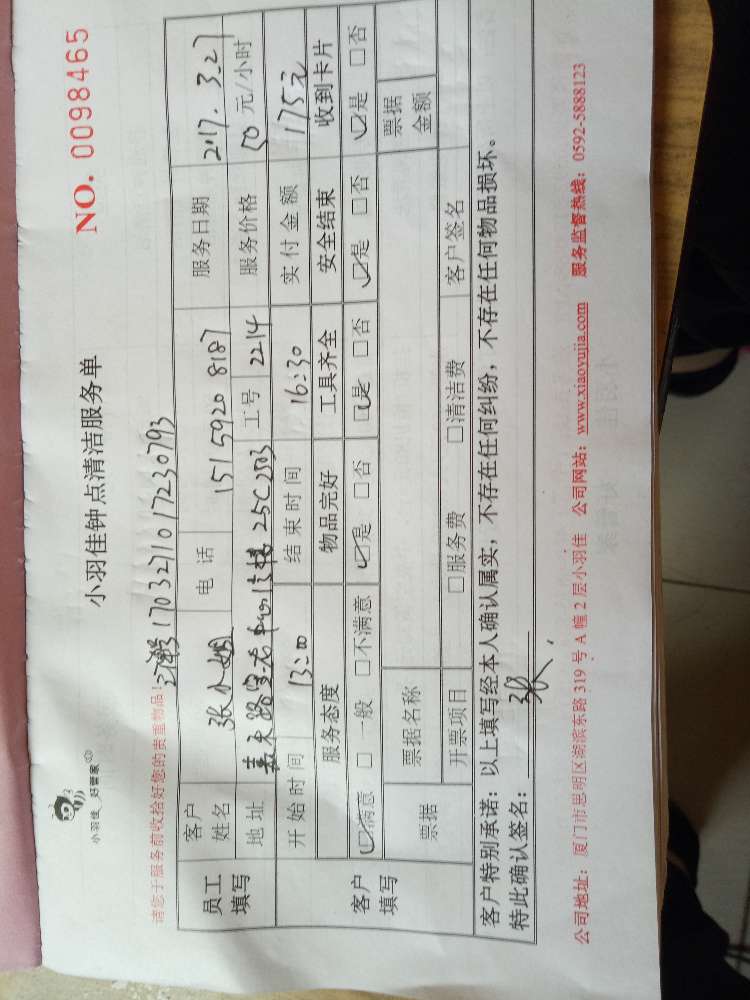 小羽佳_好管家
NO. 0098465
小羽佳钟点清洁服务单
请您于服务前收拾好您的贵重物品!
17032711017230793
员工填写 客户姓名 张小姐 电话 15159208187 服务日期 2017.3.27
地址 25C2503 工号 2214 服务价格 50元/小时
开始时间 13:00 结束时间 16:30 实付金额 175元
客户填写 服务态度 物品完好 工具齐全 安全结束 收到卡片
☑满意 □一般 □不满意 ☑是 □否 ☑是 □否 ☑是 □否 ☑是 □否
票据 票据名称 票据金额
开票项目 □服务费 □清洁费 客户签名
客户特别承诺:以上填写经本人确认属实,不存在任何纠纷,不存在任何物品损坏。
特此确认签名: 张
公司地址:厦门市思明区湖滨东路319号A幢2层小羽佳 公司网站:www.xiaoyujia.com 服务监督热线:0592-5888123